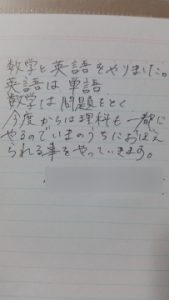 数学と英語をやりました。
英語は単語
数学は問題をとく
今度からは理科も一都に
やるのでいまのうちにおぼえ
られる事をやっていきます。